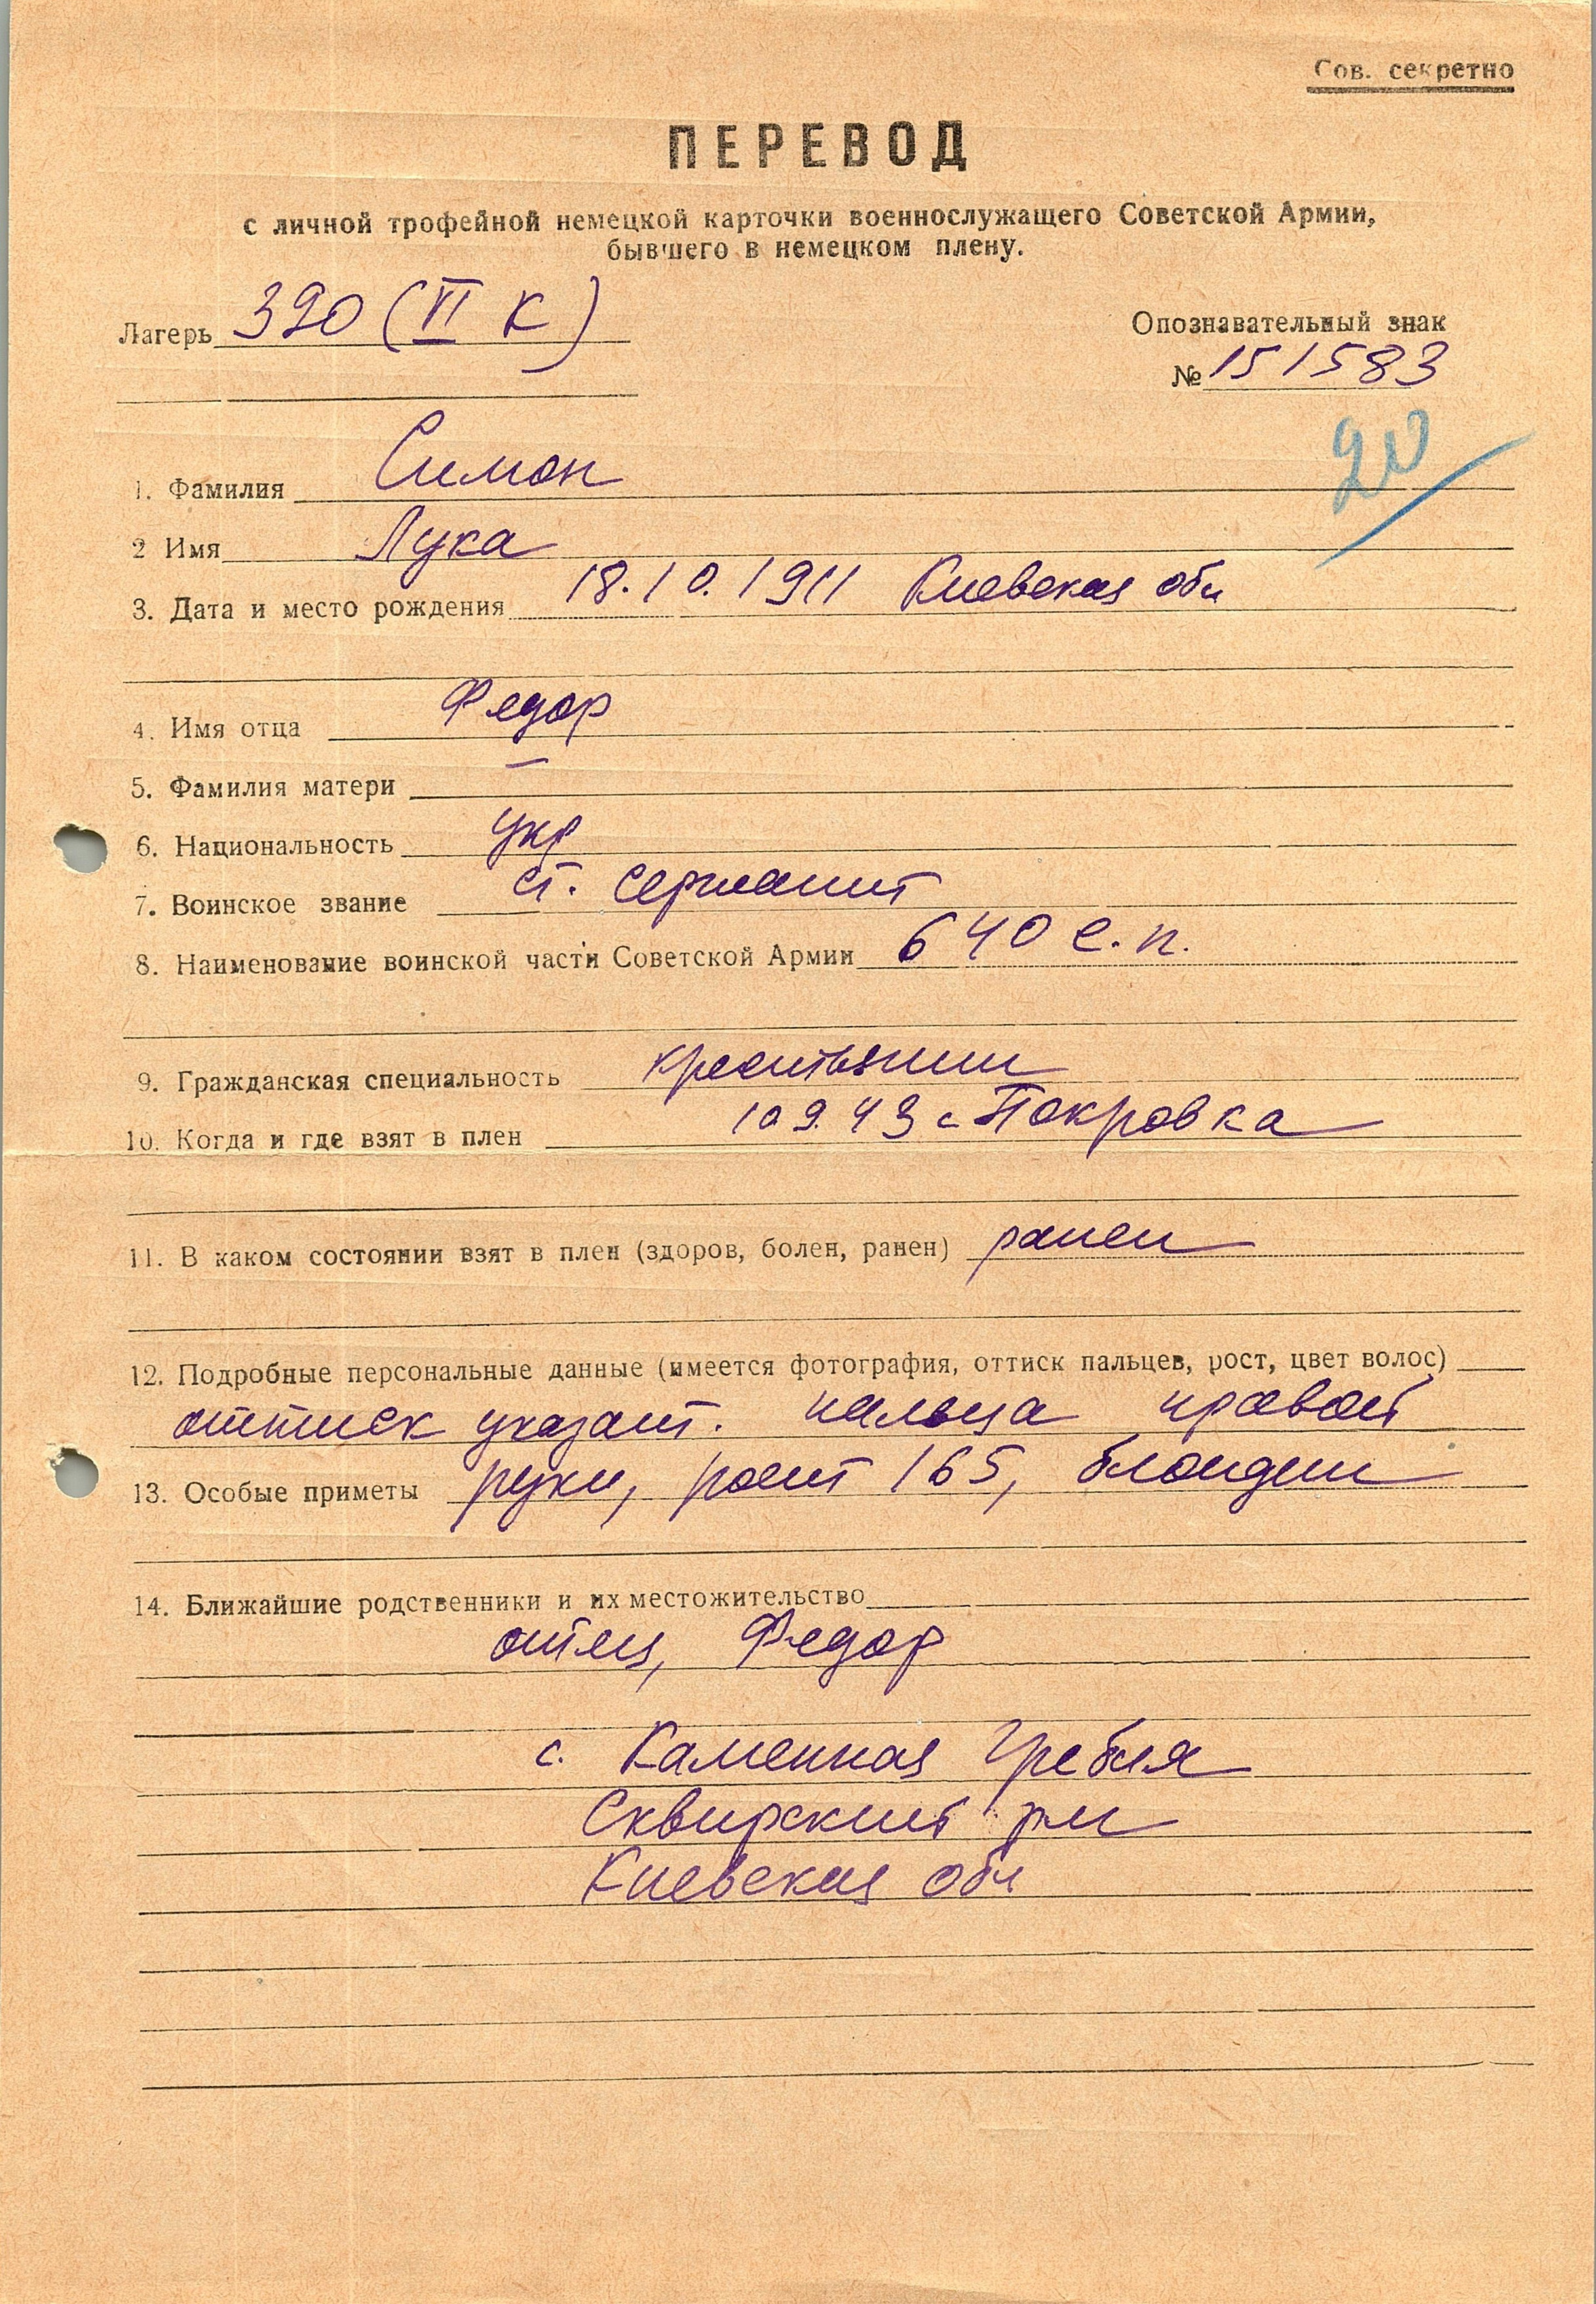 Сов. секретно
ПЕРЕВОД
с личной трофейной немецкой карточки военнослужащего Советской Армии,
бывшего в немецком плену.
Лагерь 320 (VI К)
Опознавательный знак
№ 151583
20
1. Фамилия Симон
2 Имя Лука
3. Дата и место рождения 18.10.1911 Киевская обл
4. Имя отца Федор
5. Фамилия матери —
6. Национальность укр
7. Воинское звание ст. сержант
8. Наименование воинской части Советской Армии 640 с.п.
9. Гражданская специальность крестьянин
10. Когда и где взят в плен 10 9. 43 с Покровка
11. В каком состоянии взят в плен (здоров, болен, ранен) ранен
12. Подробные персональные данные (имеется фотография, оттиск пальцев, рост, цвет волос)
оттиск указат. пальца правой
13. Особые приметы руки, рост 165, блондин
14. Ближайшие родственники и их местожительство
отец, Федор
с. Каменная Гребля
Сквирский р-н
Киевская обл